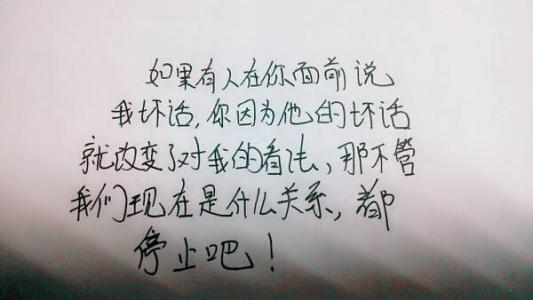 如果有人在你面前说
我坏话,你因为他的坏话
就改变了对我的看法、那不管
我们现在是什么关系,都
停止吧!